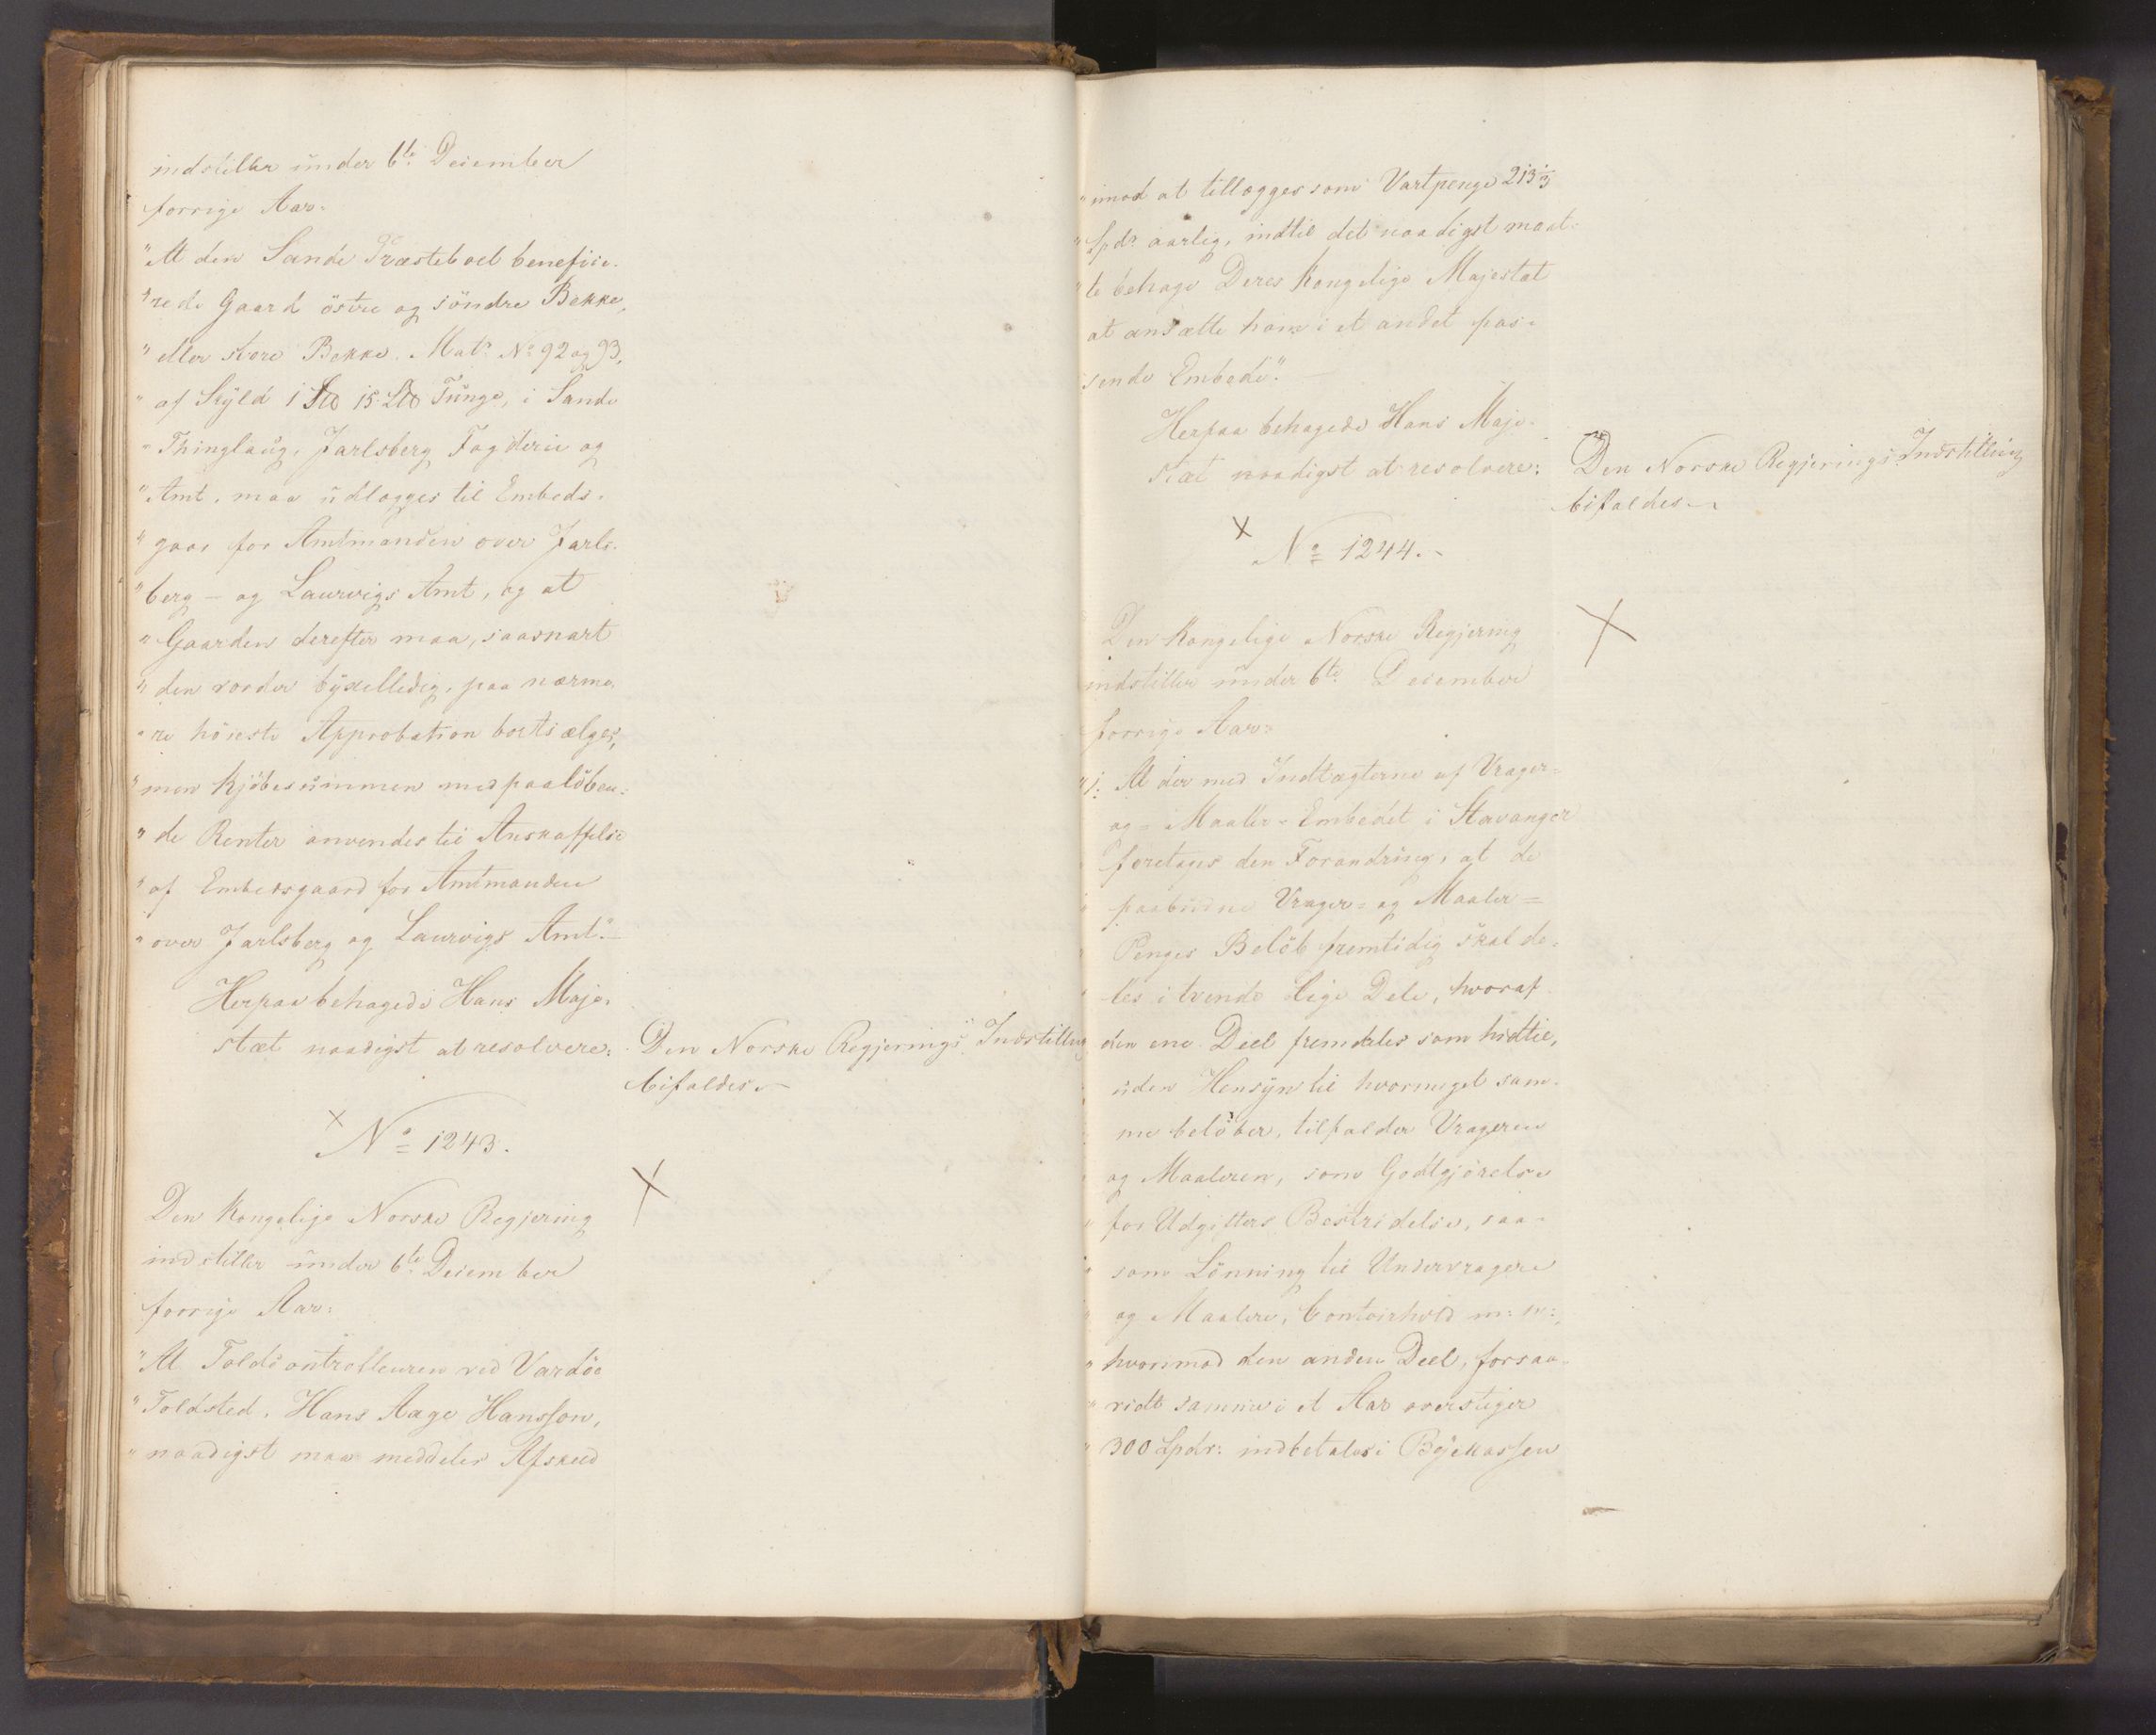 indstiller under 6te December
forrige Aar:
"At den Sande Præsteboel benefice-
"rede Gaard östre og söndre Bekke,
"eller store Bekke. Matr. No 92 og 93,
"af Skyld 1 S℔ 15 L℔ Tunge, i Sande
"Thinglaug, Jarlsberg Fogderie og
"Amt, maa udlægges til Embeds-
"gaar for Amtmanden over Jarls-
"berg - og Laurvigs Amt, og at
"Gaarden derefter maa, saasnart
"den vorder byxelledig, paa nærme-
"re höieste Approbation bortsælges,
"men Kjöbesummen med paalöben-
"de Renter anvendes til Anskaffelse
"af Embedsgaard for Amtmanden
"over Jarlsberg og Laurvigs Amt."
Herpaa behagede Hans Maje-
stæt naadigst at resolvere:
Den Norske Regjerings Indstilling
bifaldes.
No 1243.
Den Kongelige Norske Regjering
indstiller under 6te December
forrige Aar:
"At Toldcontrolleuren ved Vardöe
"Toldsted, Hans Aage Hansson,
"naadigst maa meddeles Afskeed
"imod at tillægges som Vartpenge 213 1/3
"Spdr aarlig, indtil det naadigst maat-
"te behage Deres Kongelige Majestæt
at ansætte ham i et andet pas-
sende Embede."
Herpaa behagede Hans Maje-
stæt naadigst at resolvere:
Den Norske Regjerings Indstilling
bifaldes
No 1244.
Den Kongelige Norske Regjering
indstiller under 6te December
forrige Aar:
"1: At der med Indtægterne af Vrager-
og - Maaler - Embedet i Stavanger
foretages den Forandring, at de
paabudne Vrager- og Maaler-
Penges Belöb fremtidig skal de-
les i tvende lige Dele, hvoraf
den ene Deel fremdeles som hidtil,
uden Hensyn til hvormeget sam-
me belöber, tilfalder Vrageren
og Maaleren, som Godtgjörelse
"for Udgifters Bestridelse, saa-
"som Lönning til Undervragere
"og Maalere, Contoirhold m: m:,
"hvorimod den anden Deel, forsaa-
"vidt samme i et Aar overstiger
"300 Spdr: indbetales i Byekassen